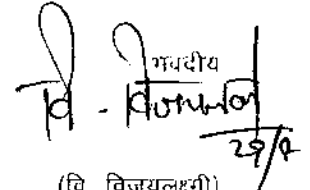 भवदीय
वि. विजयलक्ष्मी
29/4
(वि. विजयलक्ष्मी)